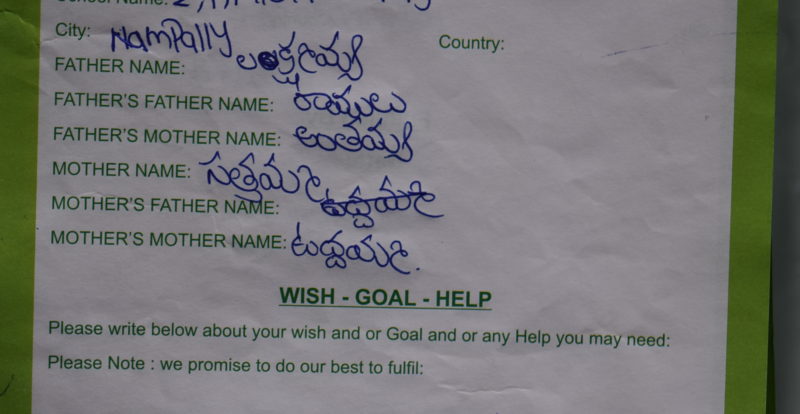 School Name:
City: NamPally Country:
FATHER NAME: లక్ష్మయ్య
FATHER'S FATHER NAME: రాములు
FATHER'S MOTHER NAME: అంతయ్య
MOTHER NAME: సత్తమ్మ
MOTHER'S FATHER NAME:
MOTHER'S MOTHER NAME:
WISH - GOAL - HELP
Please write below about your wish and or Goal and or any Help you may need:
Please Note : we promise to do our best to fulfil: